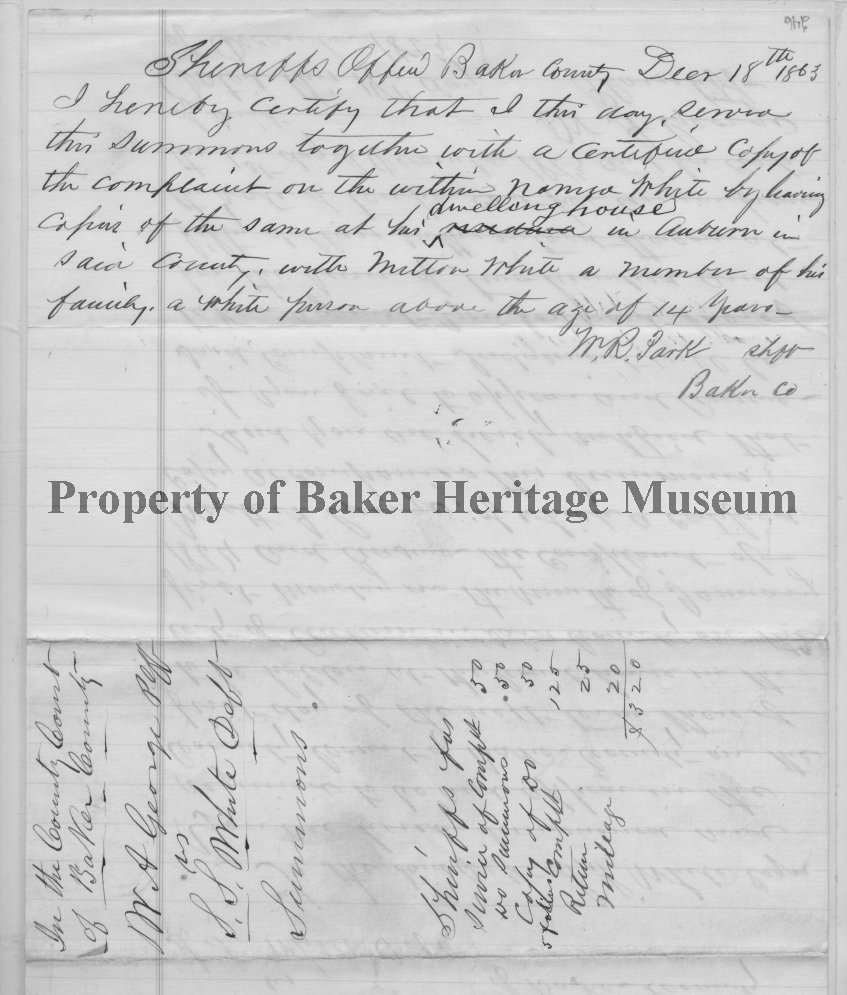 346
Sheriffs Office Baker County Decr 18th 1863
I hereby Certify that I this day, served
this summons together with a Certified Copy of
the complaint on the within named White by leaving
Copies of the same at his dwelling house in Auburn in
said County, with Milton White a member of his
family. a White person above the age of 14 years
W. R. Park Shff
Baker Co
Property of Baker Heritage Museum
In the County Court
of Baker County
W A George Plff
vs
S. S. White Deft
Summons.
Sheriffs fees
Service of Complt 50
Do Summons .50
Copy of Do 50
5 folios Complt 125
Return 25
Mileage 20
$320